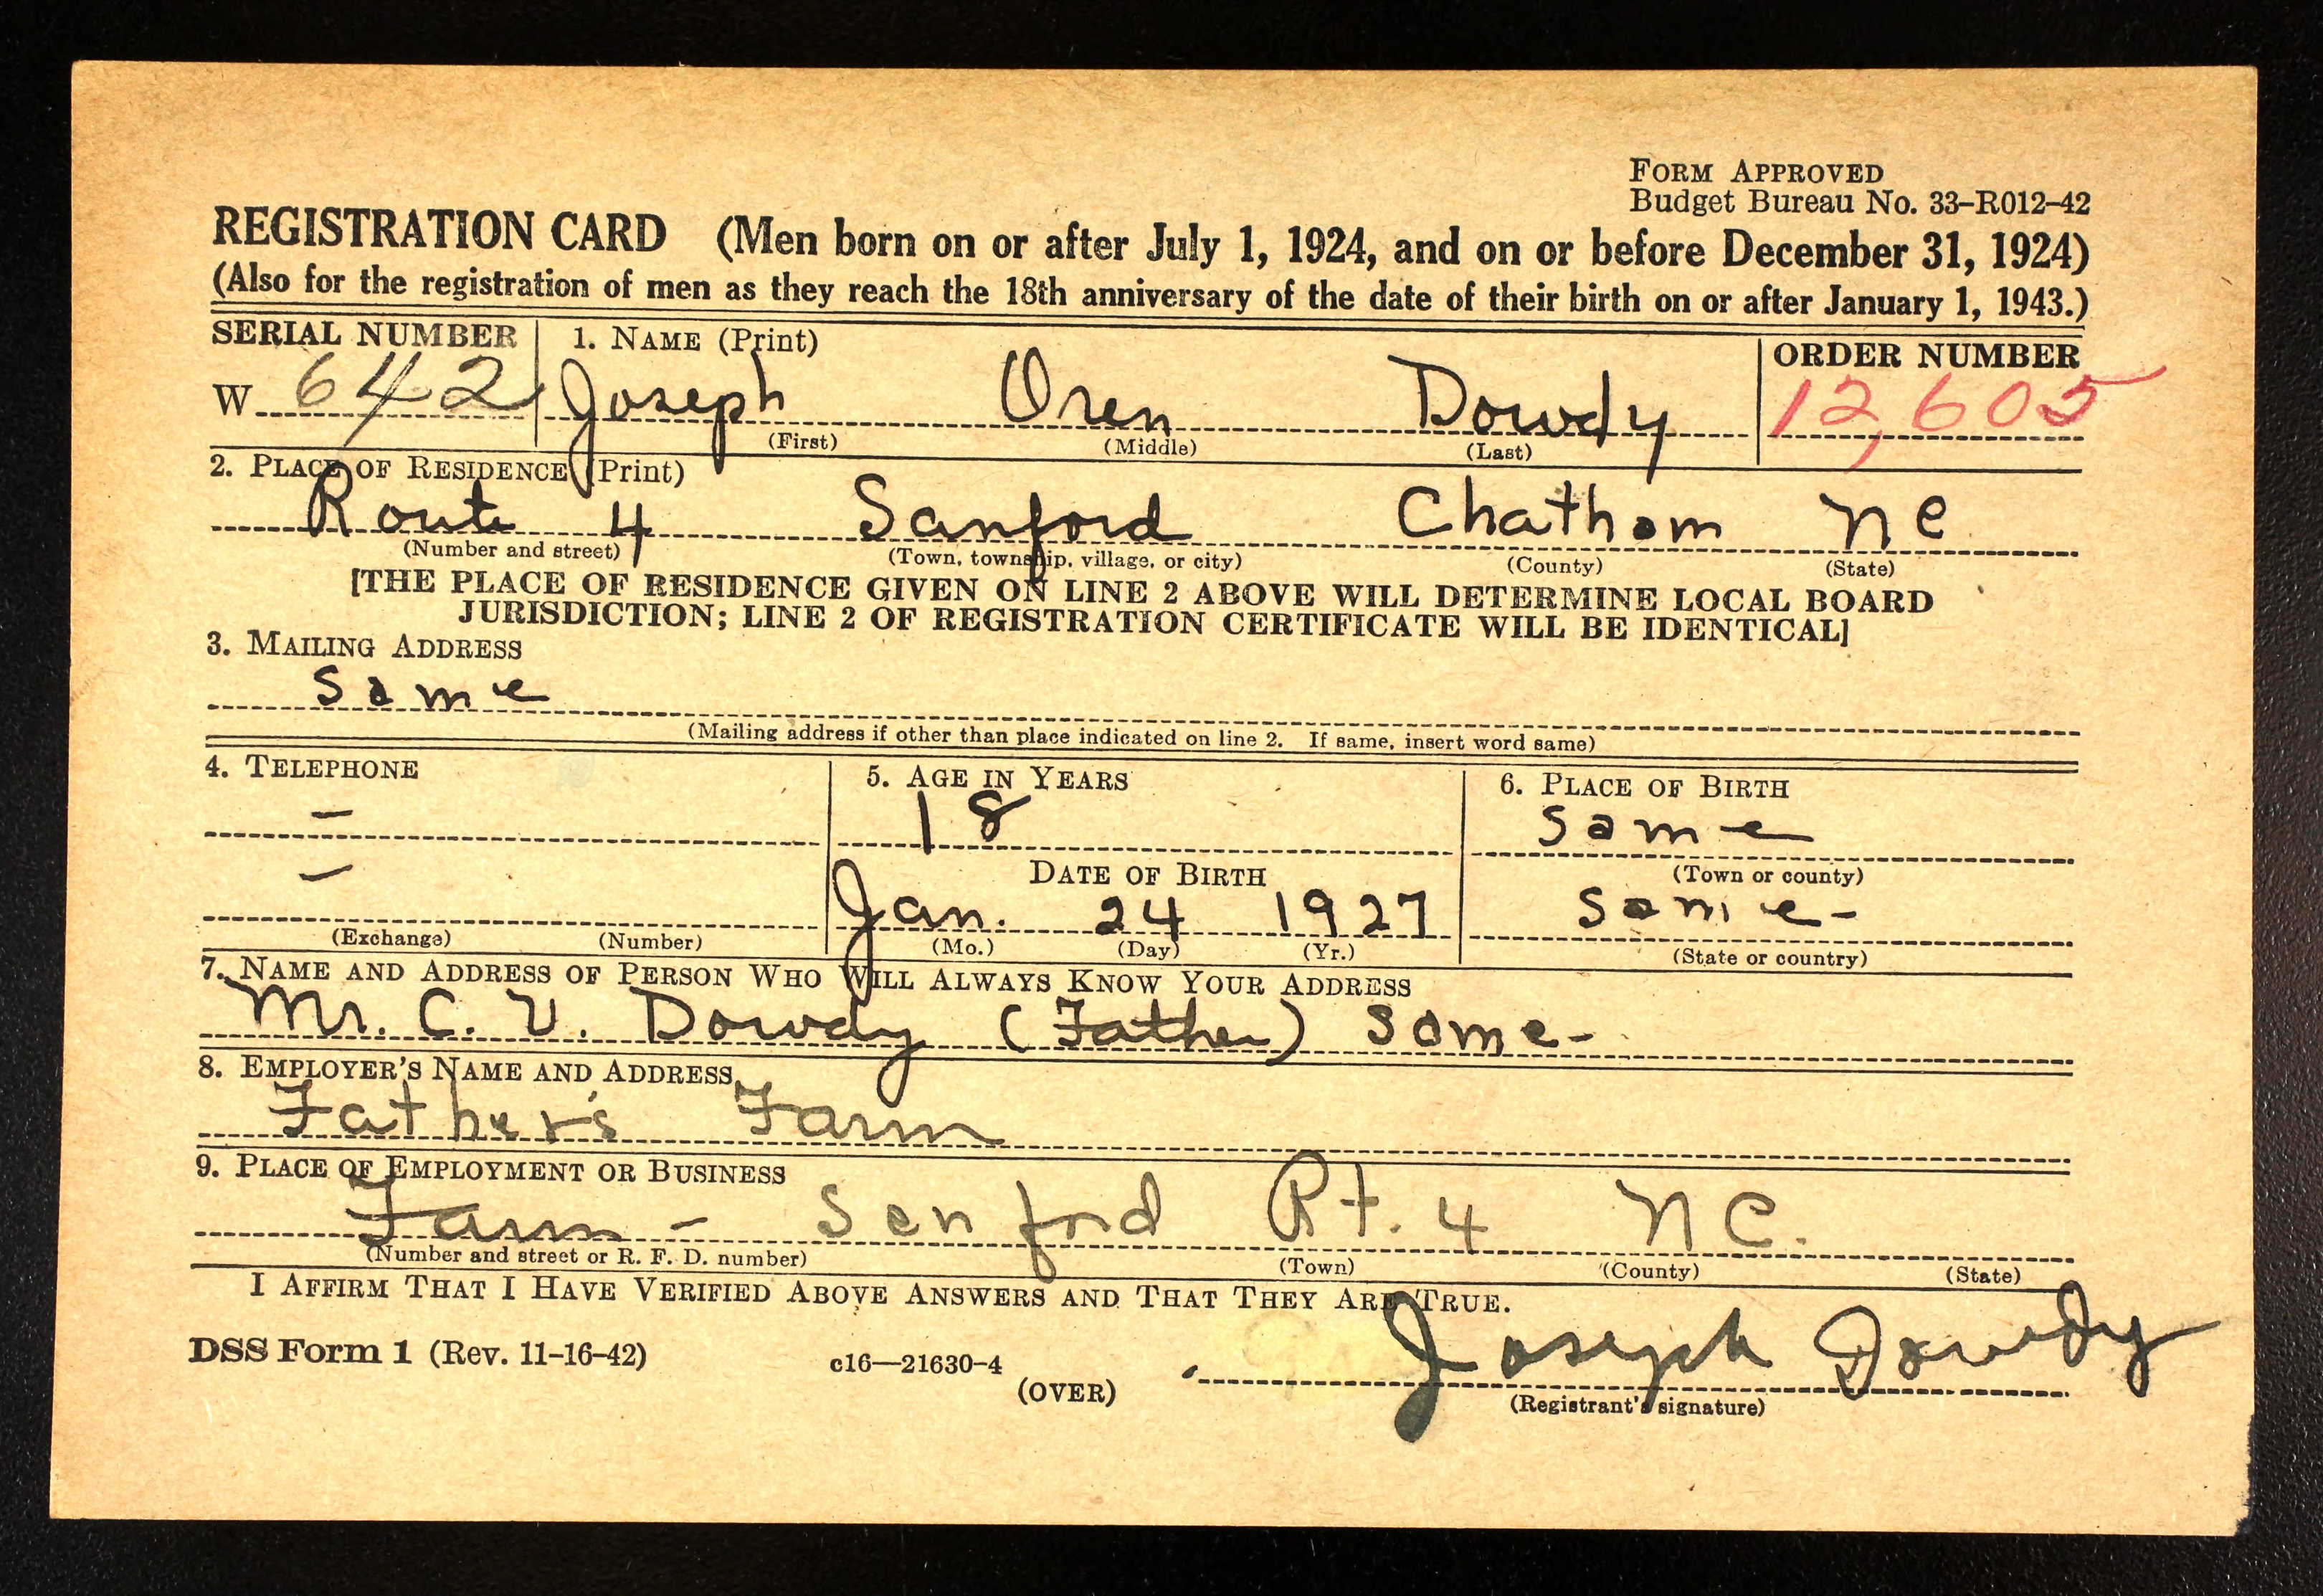 FORM APPROVED
Budget Bureau No. 33-R012-42
REGISTRATION CARD (Men born on or after July 1, 1924, and on or before December 31, 1924)
(Also for the registration of men as they reach the 18th anniversary of the date of their birth on or after January 1, 1943.)
SERIAL NUMBER 1. NAME (Print) ORDER NUMBER
W 642 Joseph Oren Dowdy 12,605
(First) (Middle) (Last)
2. PLACE OF RESIDENCE (Print)
Route 4 Sanford Chatham NC
(Number and street) (Town, township, village, or city) (County) (State)
[THE PLACE OF RESIDENCE GIVEN ON LINE 2 ABOVE WILL DETERMINE LOCAL BOARD
JURISDICTION; LINE 2 OF REGISTRATION CERTIFICATE WILL BE IDENTICAL]
3. MAILING ADDRESS
Same
(Mailing address if other than place indicated on line 2. If same, insert word same)
4. TELEPHONE 5. AGE IN YEARS 6. PLACE OF BIRTH
— 18 Same
— DATE OF BIRTH (Town or county)
Jan. 24 1927 Same-
(Exchange) (Number) (Mo.) (Day) (Yr.) (State or country)
7. NAME AND ADDRESS OF PERSON WHO WILL ALWAYS KNOW YOUR ADDRESS
Mr. C. V. Dowdy (Father) Same-
8. EMPLOYER'S NAME AND ADDRESS
Father's Farm
9. PLACE OF EMPLOYMENT OR BUSINESS
Farm - Sanford Rt. 4 NC.
(Number and street or R. F. D. number) (Town) (County) (State)
I AFFIRM THAT I HAVE VERIFIED ABOVE ANSWERS AND THAT THEY ARE TRUE.
DSS Form 1 (Rev. 11-16-42) c16—21630-4 Joseph Dowdy
(OVER) (Registrant's signature)